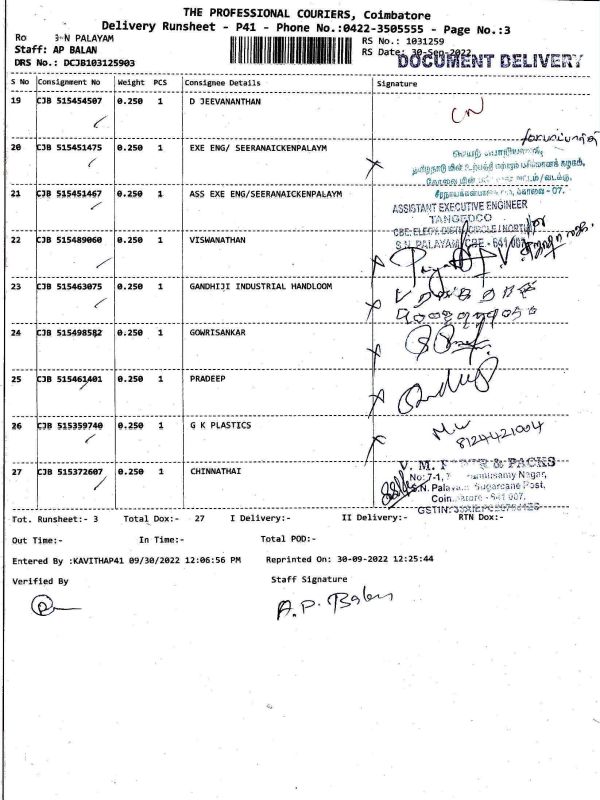 THE PROFESSIONAL COURIERS, Coimbatore
Delivery Runsheet - P41 - Phone No.:0422-3505555 - Page No.:3
N PALAYAM
RS No.: 1031259
Staff: AP BALAN
RS Date: 30-Sep-2022
DOCUMENT DELIVERY
DRS No.: DCJB103125903
S No Consignment No Weight PCS Consignee Details Signature
19 CJB 515454507 0.250 1 D JEEVANANTHAN
20 CJB 515451475 0.250 1 EXE ENG/ SEERANAICKENPALAYM
21 CJB 515451467 0.250 1 ASS EXE ENG/SEERANAICKENPALAYM
ASSISTANT EXECUTIVE ENGINEER
TANGEDCO
CBE. ELECY. DISTN. CIRCLE / NORTH
S.N. PALAYAM, CBE - 641 007.
22 CJB 515489060 0.250 1 VISWANATHAN
23 CJB 515463075 0.250 1 GANDHIJI INDUSTRIAL HANDLOOM
24 CJB 515498582 0.250 1 GOWRISANKAR
25 CJB 515461401 0.250 1 PRADEEP
26 CJB 515359740 0.250 1 G K PLASTICS
8124421004
27 CJB 515372607 0.250 1 CHINNATHAI
V. M. & PACKS
No: 7-1, Nagar,
S.N. Sugarcane Post,
641 007.
GSTIN:
Tot. Runsheet:- 3 Total Dox:- 27 I Delivery:- II Delivery:- RTN Dox:-
Out Time:- In Time:- Total POD:-
Entered By :KAVITHAP41 09/30/2022 12:06:56 PM Reprinted On: 30-09-2022 12:25:44
Verified By Staff Signature
A.P. Balan